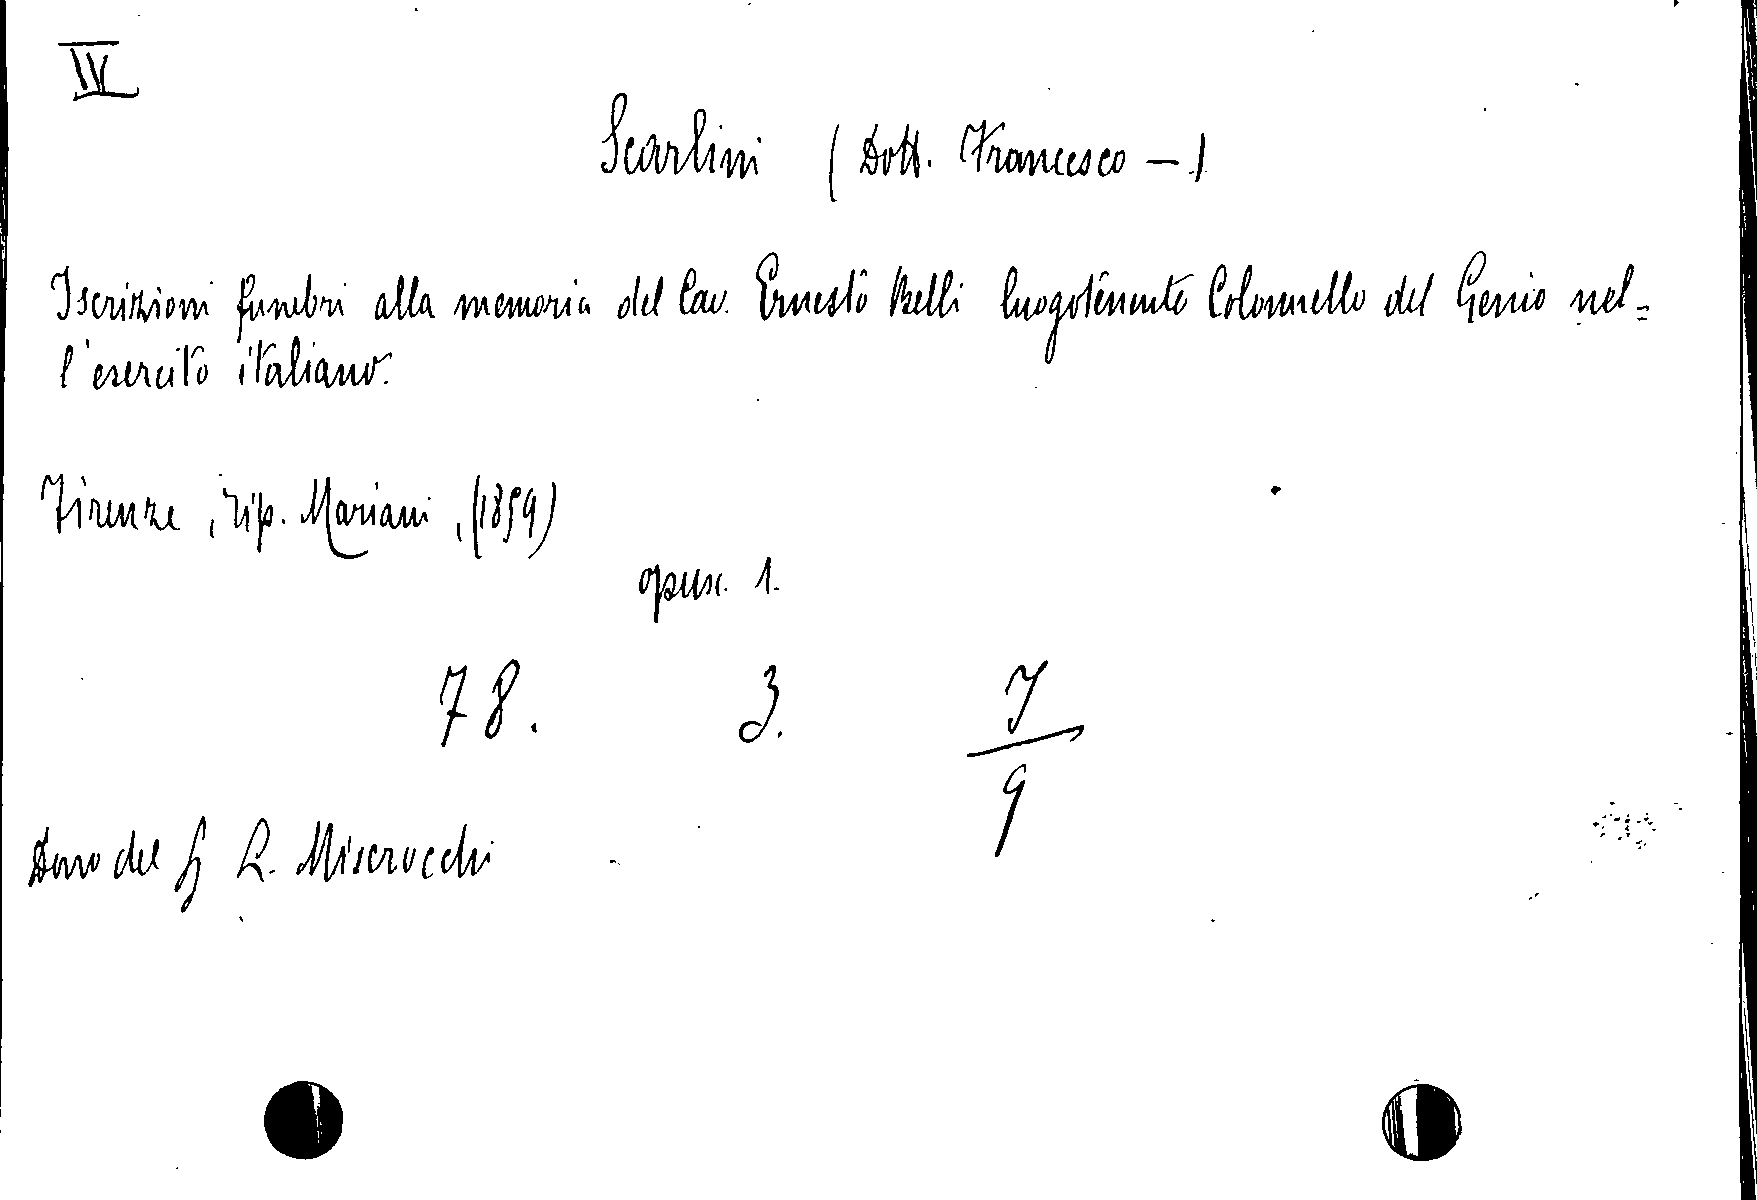 IV
Scarlini (Dott. Francesco —)
Iscrizioni funebri alla memoria del Cav. Ernesto Belli luogotenente Colonnello del Genio nel=
l'esercito italiano.
Firenze, tip. Mariani, (1859)
opusc. 1.
78. 3. 7/9
Dono del S. Miserocchi